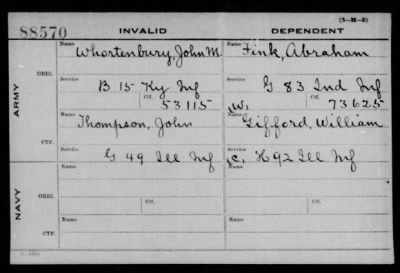 (3-H-3)
88570 INVALID DEPENDENT
Name Whortenbury, John M. Name Fink, Abraham
ARMY
ORIG.
Service B 15 Ky Inf Service G 83 Ind Inf
Ctf. 53115 W. Ctf. 73625
Name Thompson, John Name Gifford, William
CTF.
Service G 49 Ill Inf Service C. H 92 Ill Inf
NAVY
ORIG.
Name Name
Service Ctf. Service Ctf.
CTF.
Name Name